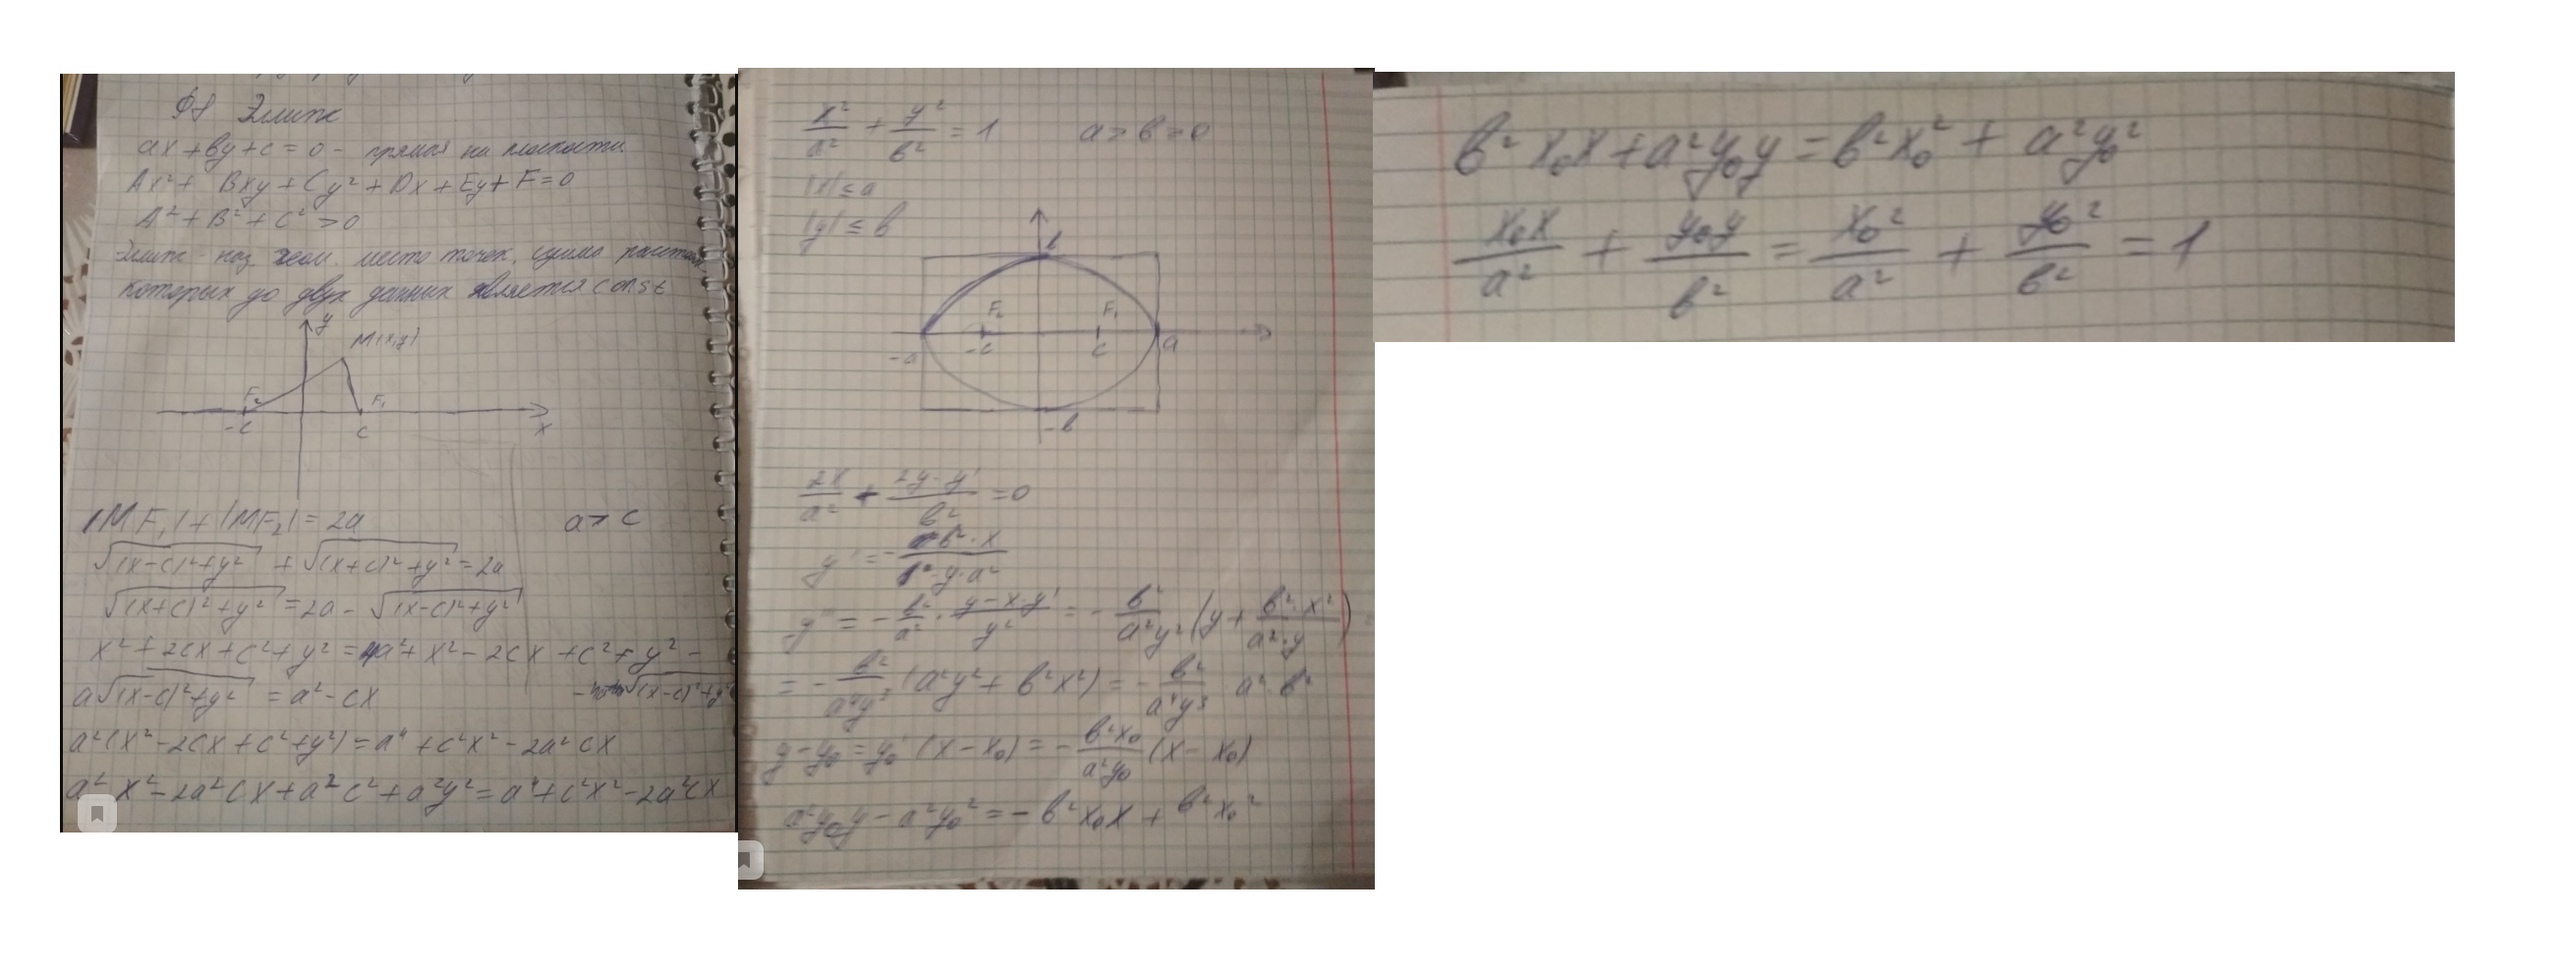 §8 Элипс
ax + by + c = 0 - прямая на плоскости
Ax² + Bxy + Cy² + Dx + Ey + F = 0
A² + B² + C² > 0
Элипс - наз. геом. место точек, сумма расстоян
которых до двух данных является const
y
M(x,y)
F₂ F₁
-c c x
|MF₁| + |MF₂| = 2a a > c
√((x-c)²+y²) + √((x+c)²+y²) = 2a
√((x+c)²+y²) = 2a - √((x-c)²+y²)
x² + 2cx + c² + y² = 4a² + x² - 2cx + c² + y² -
- √((x-c)²+y²
a√((x-c)²+y²) = a² - cx
a²(x² - 2cx + c² + y²) = a⁴ + c²x² - 2a²cx
a²x² - 2a²cx + a²c² + a²y² = a⁴ + c²x² - 2a²cx
x²/a² + y²/b² = 1 a > b > 0
|x| ≤ a
|y| ≤ b
b
F₂ F₁
-a -c c a
-b
2x/a² + 2y·y'/b² = 0
y' = - b²·x/y·a²
y'' = - b²/a² · y-x·y'/y² = - b²/a²y² (y + b²·x²/a²·y) =
= - b²/a⁴y³ (a²y² + b²x²) = - b²/a⁴y³ a² b²
y - y₀ = y₀' (x - x₀) = - b²x₀/a²y₀ (x - x₀)
a²y₀y - a²y₀² = - b²x₀x + b²x₀²
b²x₀x + a²y₀y = b²x₀² + a²y₀²
x₀x/a² + y₀y/b² = x₀²/a² + y₀²/b² = 1